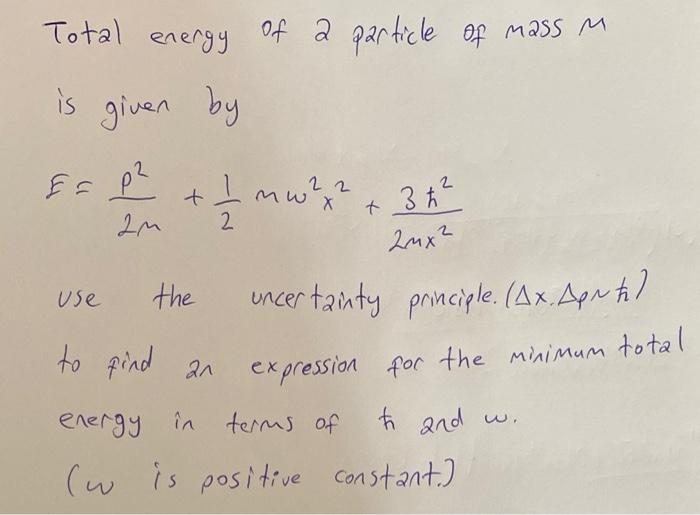 Total energy of a particle of mass m
is given by
E = p²/2m + 1/2 mw²x² + 3ħ²/2mx²
use the uncertainty principle. (Δx.Δp~ħ)
to find an expression for the minimum total
energy in terms of ħ and w.
(w is positive constant.)